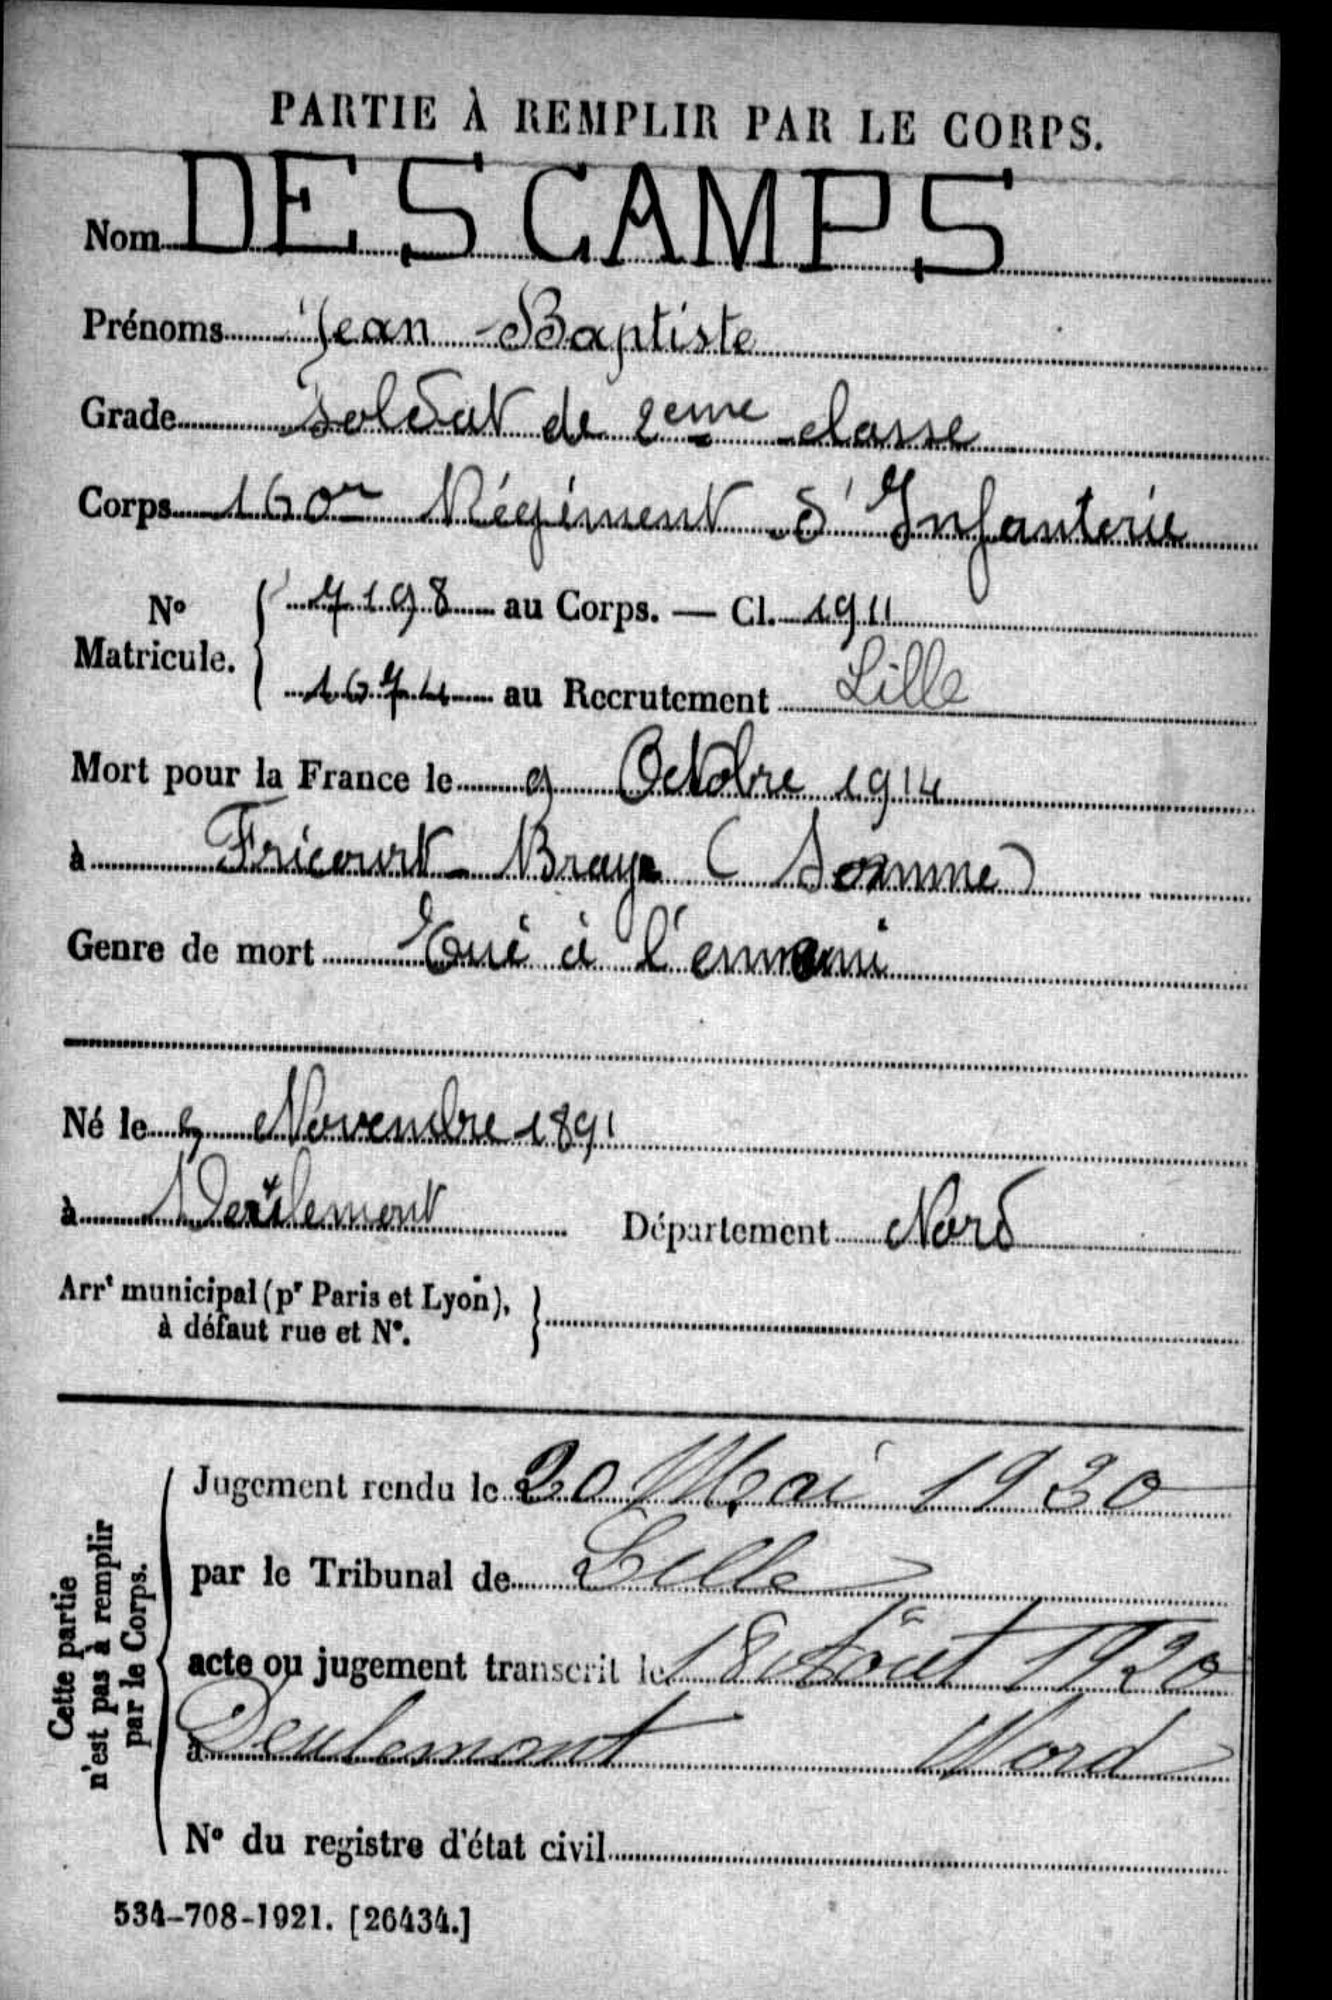 PARTIE À REMPLIR PAR LE CORPS.
Nom DESCAMPS
Prénoms Jean-Baptiste
Grade Soldat de 2eme classe
Corps 160e Régiment d'Infanterie
N° Matricule. { 7198 au Corps. — Cl. 1911
1674 au Recrutement Lille
Mort pour la France le 9 Octobre 1914
à Fricourt-Bray (Somme)
Genre de mort Tué à l'ennemi
Né le 5 Novembre 1891
à Deulemont Département Nord
Arrt municipal (pr Paris et Lyon), à défaut rue et N°. }
Cette partie n'est pas à remplir par le Corps.
Jugement rendu le 20 Mai 1920
par le Tribunal de Lille
acte ou jugement transcrit le 18 Août 1920
à Deulemont Nord
N° du registre d'état civil
534-708-1921. [26434.]